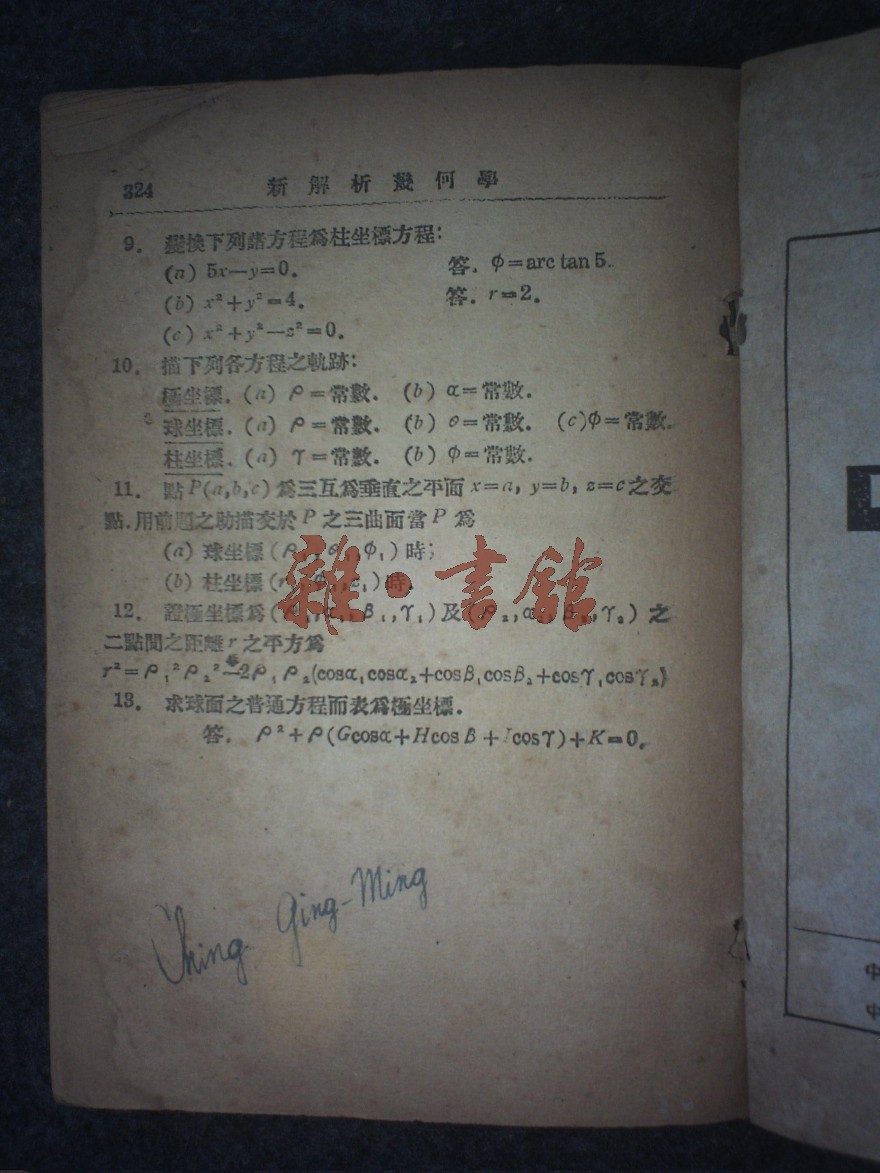 324 新解析幾何學
9. 變換下列諸方程爲柱坐標方程:
(a) 5x—y=0. 答. φ=arc tan 5.
(b) x²+y²=4. 答. r=2.
(c) x²+y²—z²=0.
10. 描下列各方程之軌跡:
極坐標. (a) ρ=常數. (b) α=常數.
球坐標. (a) ρ=常數. (b) θ=常數. (c) φ=常數.
柱坐標. (a) γ=常數. (b) φ=常數.
11. 點P(a,b,c)爲三互爲垂直之平面 x=a, y=b, z=c之交
點.用前題之助描交於P之三曲面當P爲
(a) 球坐標(ρ₁,θ₁,φ₁)時;
(b) 柱坐標(r₁,φ₁,z₁)時.
雜·書館
12. 證極坐標爲(ρ₁,α₁,β₁,γ₁)及(ρ₂,α₂,β₂,γ₂)之
二點間之距離r之平方爲
r²=ρ₁²ρ₂²—2ρ₁ρ₂(cosα₁cosα₂+cosβ₁cosβ₂+cosγ₁cosγ₂)
13. 求球面之普通方程而表爲極坐標.
答. ρ²+ρ(Gcosα+Hcosβ+Icosγ)+K=0.
Ching Ging-Ming
中
中